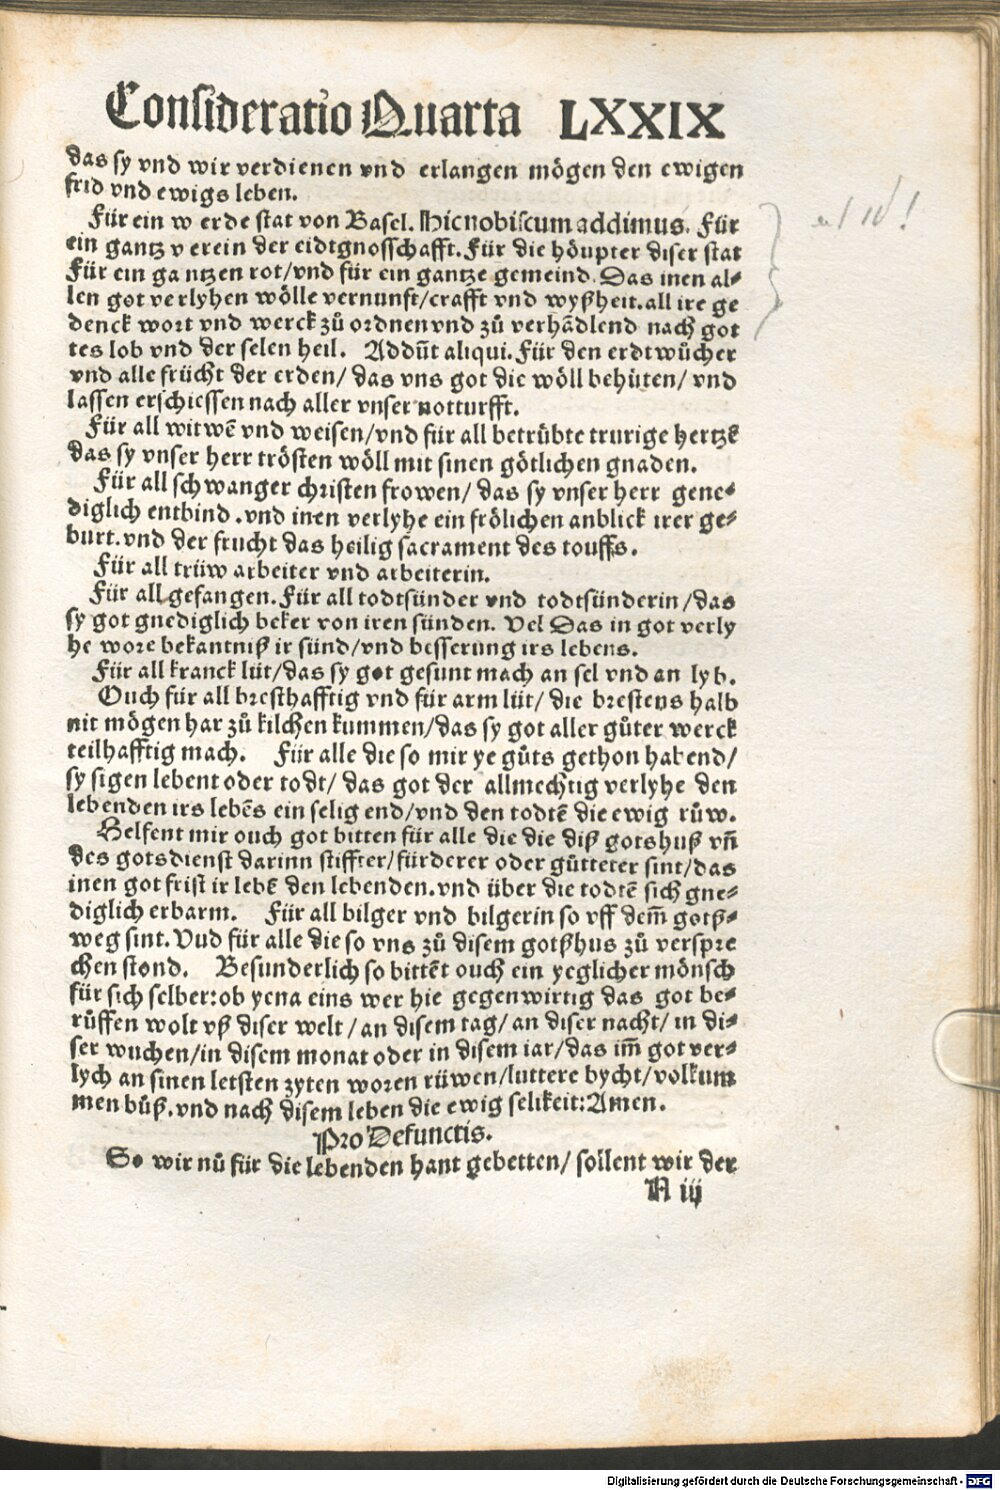 Consideratio Quarta LXXIX
das sy vnd wir verdienen vnd erlangen mögen den ewigen
frid vnd ewigs leben.
Für ein w erde stat von Basel. Hic nobiscum addimus. Für
ein gantz v erein der eidtgnosschafft. Für die höupter diser stat
Für ein ga ntzen rot/vnd für ein gantze gemeind. Das inen al⸗
len got verlyhen wölle vernunft/crafft vnd wyßheit. all ire ge
denck wort vnd werck zů ordnen vnd zů verhādlend nach got
tes lob vnd der selen heil. Addūt aliqui. Für den erdtwůcher
vnd alle frücht der erden/ das vns got die wöll behüten/ vnd
lassen erschiessen nach aller vnser notturfft.
Für all witwē vnd weisen/vnd für all betrübte trurige hertzē
das sy vnser herr trösten wöll mit sinen götlichen gnaden.
Für all schwanger christen frowen/ das sy vnser herr gene⸗
diglich entbind .vnd inen verlyhe ein frölichen anblick irer ge⸗
burt. vnd der frucht das heilig sacrament des touffs.
Für all trüw arbeiter vnd arbeiterin.
Für all gefangen. Für all todtsünder vnd todtsünderin/das
sy got gnediglich beker von iren sünden. Vel Das in got verly
he wore bekantniß ir sünd/vnd besserung irs lebens.
Für all kranck lüt/das sy got gesunt mach an sel vnd an lyb.
Ouch für all bresthafftig vnd für arm lüt/ die brestens halb
nit mögen har zů kilchen kummen/das sy got aller gůter werck
teilhafftig mach. Für alle die so mir ye gůts gethon habend/
sy sigen lebent oder todt/ das got der allmechtig verlyhe den
lebenden irs lebēs ein selig end/vnd den todtē die ewig růw.
Helfent mir ouch got bitten für alle die die diß gotshuß vn̄
des gotsdienst darinn stiffter/fürderer oder gütteter sint/das
inen got frist ir lebē den lebenden. vnd über die todtē sich gne⸗
diglich erbarm. Für all bilger vnd bilgerin so vff dem̄ gotß⸗
weg sint. Vud für alle die so vns zů disem gotßhus zů verspre
chen stond. Besunderlich so bittēt ouch ein yeglicher mönsch
für sich selber: ob yena eins wer hie gegenwirtig das got be⸗
rüffen wolt vß diser welt/ an disem tag/ an diser nacht/ in di⸗
ser wuchen/in disem monat oder in disem iar/das im̄ got ver⸗
lych an sinen letsten zyten woren rüwen/luttere bycht/volkum
men bůß. vnd nach disem leben die ewig selikeit: Amen.
Pro Defunctis.
So wir nů für die lebenden hant gebetten/ sollent wir der
N iij
Digitalisierung gefördert durch die Deutsche Forschungsgemeinschaft - DFG